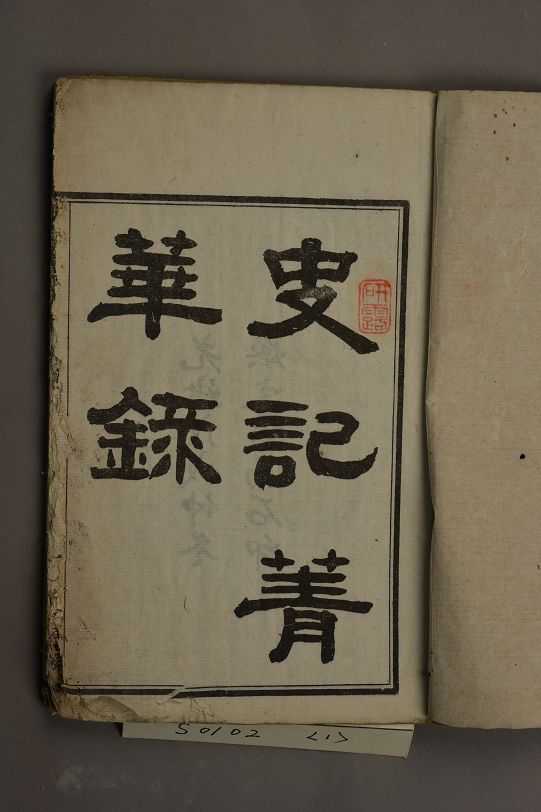 史記菁
華錄
研露
S0102 <1>